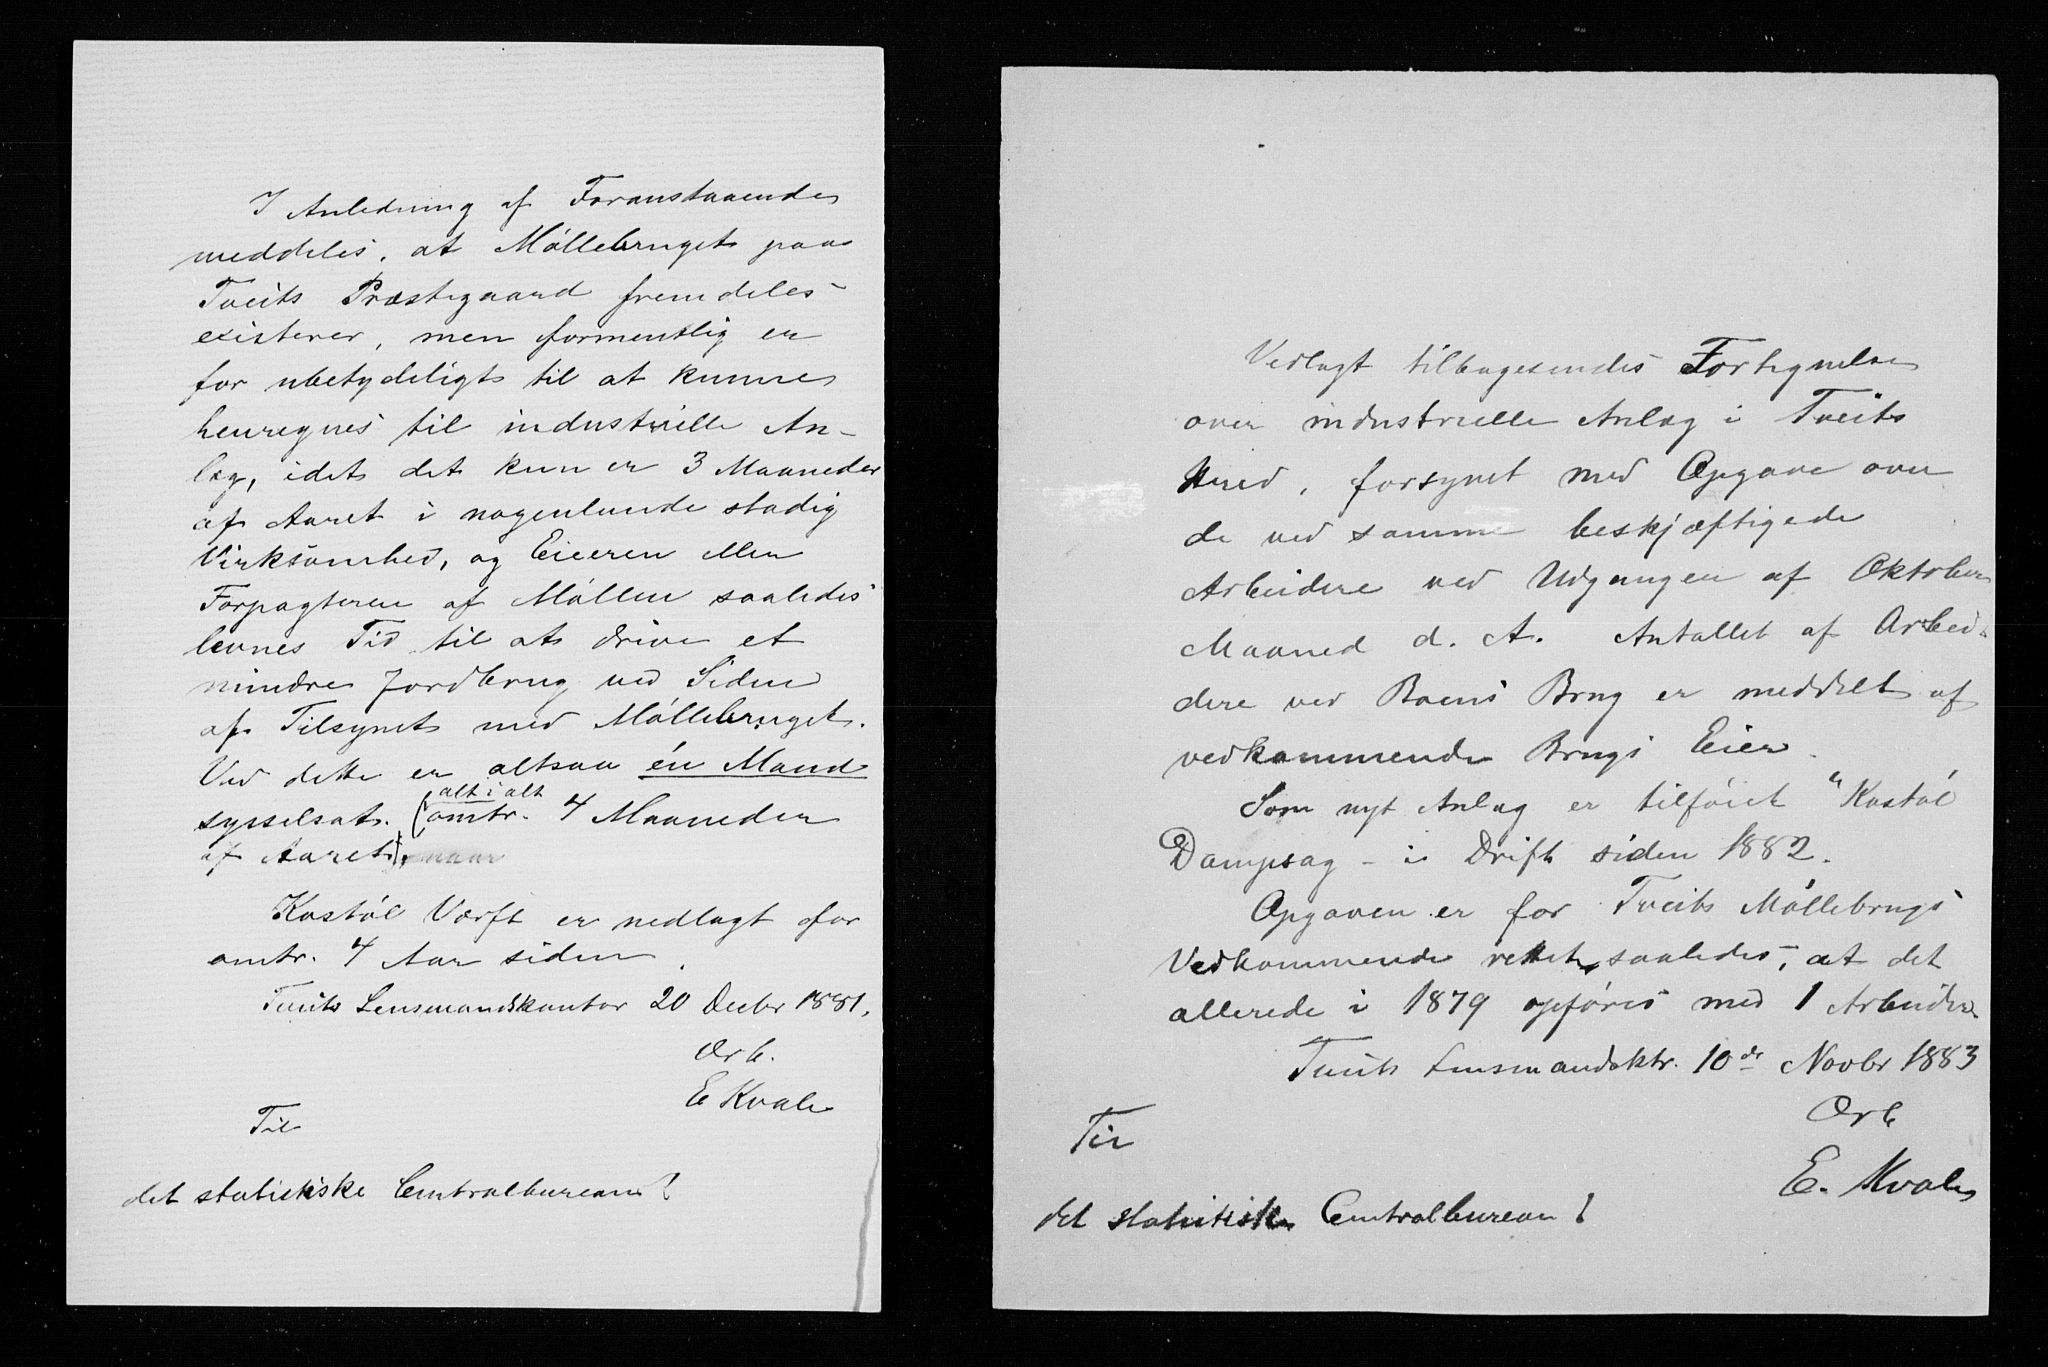 I Anledning af Foranstaaende
meddeles, at Møllebruget paa
Tveits Præstegaard fremdeles
existerer, men formentlig er
for ubetydeligt til at kunne
henregnes til industrielle An-
læg, idet det kun er 3 Maaneder
af Aaret i nogenlunde stadig
Virksomhed, og Eieren eller
Forpagteren af Møllen saaledes
levnes Tid til at drive et
mindre Jordbrug ved Siden
af Tilsynet med Møllebruget.
Ved dette er altsaa én Mand
alt i alt
sysselsat. (omtr. 4 Maaneder
af Aaret).
Kostøl Værft er nedlagt for
omtr. 4 Aar siden.
Tveits Lensmandskontor 20 Decbr 1881.
Ærb.
E Kvale
Til
det statistiske Centralbureau!
Vedlagt tilbagesendes Fortegnelse
over industrielle Anlæg i Tveits
Herred, forsynet med Opgave over
de ved samme beskjæftigede
Arbeidere ved Udgangen af Oktober
Maaned d. A. Antallet af Arbei-
dere ved Boens Brug er meddelt af
vedkommende Brugs Eier.
Som nyt Anlæg er tilføiet "Kostøl
Dampsag - i Drift siden 1882.
Opgaven er for Tveits Møllebrugs
Vedkommende rettet saaledes, at det
allerede i 1879 opføres med 1 Arbeider
Tveits Lensmandsktr. 10de Novbr 1883
Ærb
E. Kvale
Til
det statistiske Centralbureau!